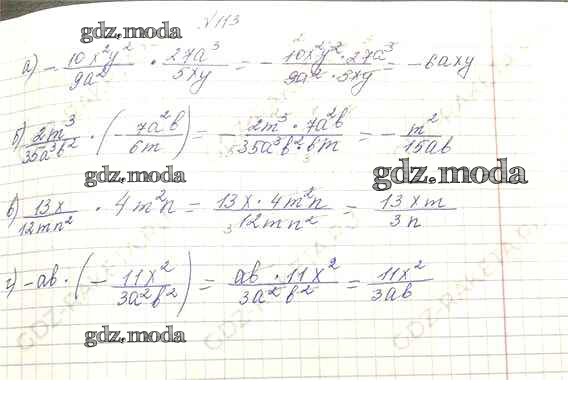 №113
gdz.moda
а) - 10x²y²/9a² · 27a³/5xy = - 10x²y²·27a³/9a²·5xy = -6axy
б) 2m³/35a³b² · (- 7a²b/6m) = - 2m³·7a²b/35a³b²·6m = - m²/15ab
gdz.moda gdz.moda
в) 13x/12mn² · 4m²n = 13x·4m²n/12mn² = 13xm/3n
г) -ab · (- 11x²/3a²b²) = ab·11x²/3a²b² = 11x²/3ab
gdz.moda